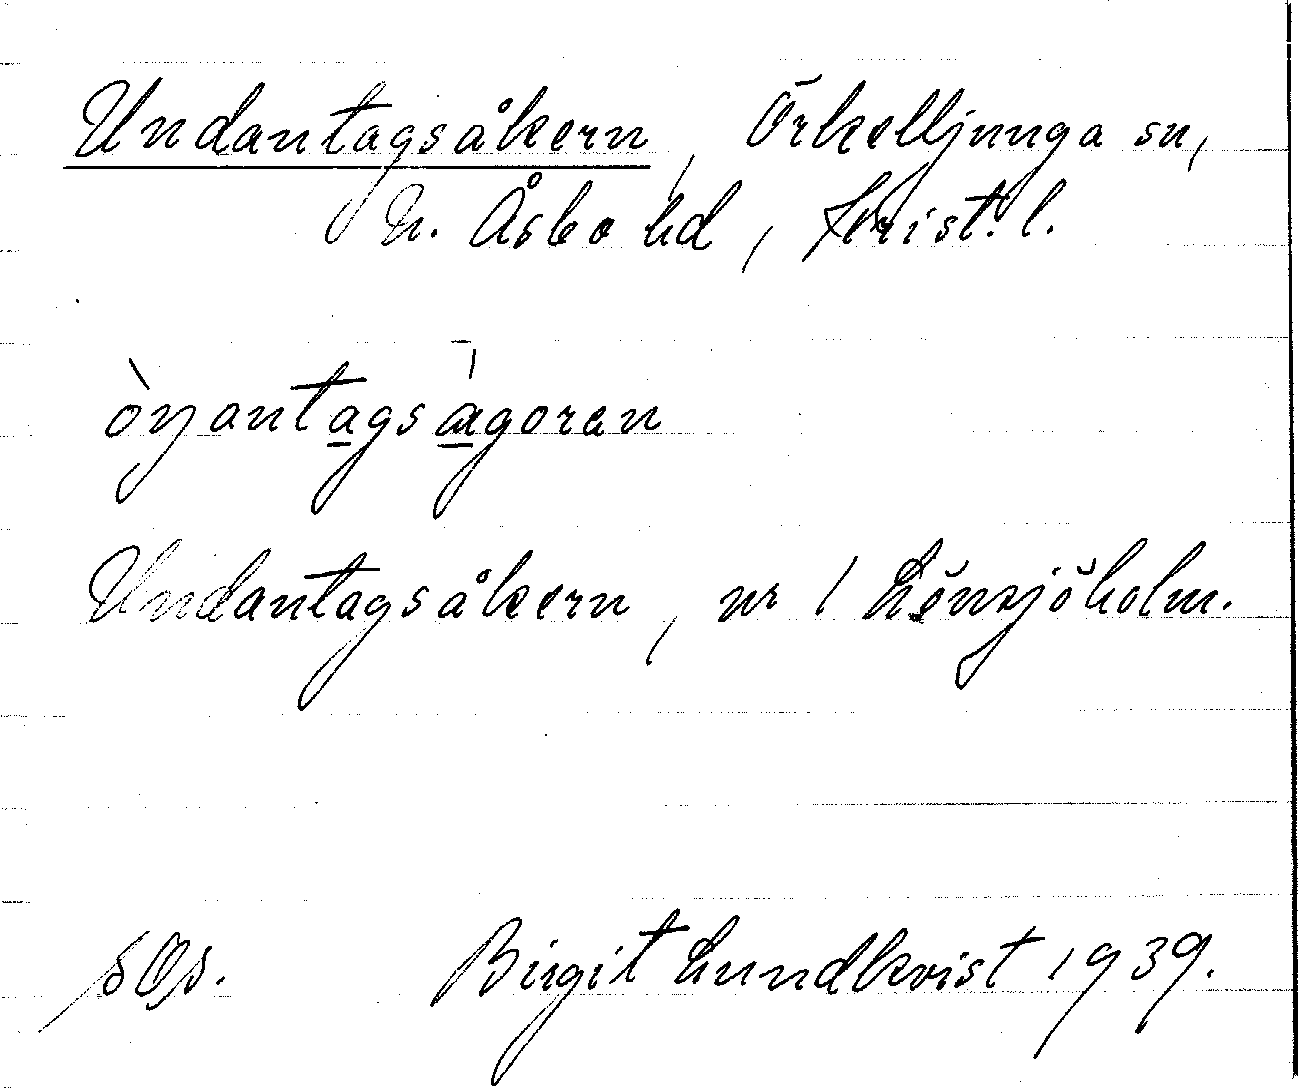 Undantagsåkern, Örkelljunga sn,
N. Åsbo hd, Krist. l.
òŋantagsàgoren
Undantagsåkern, nr 1 Lönsjöholm.
Birgit Lundkvist 1939.